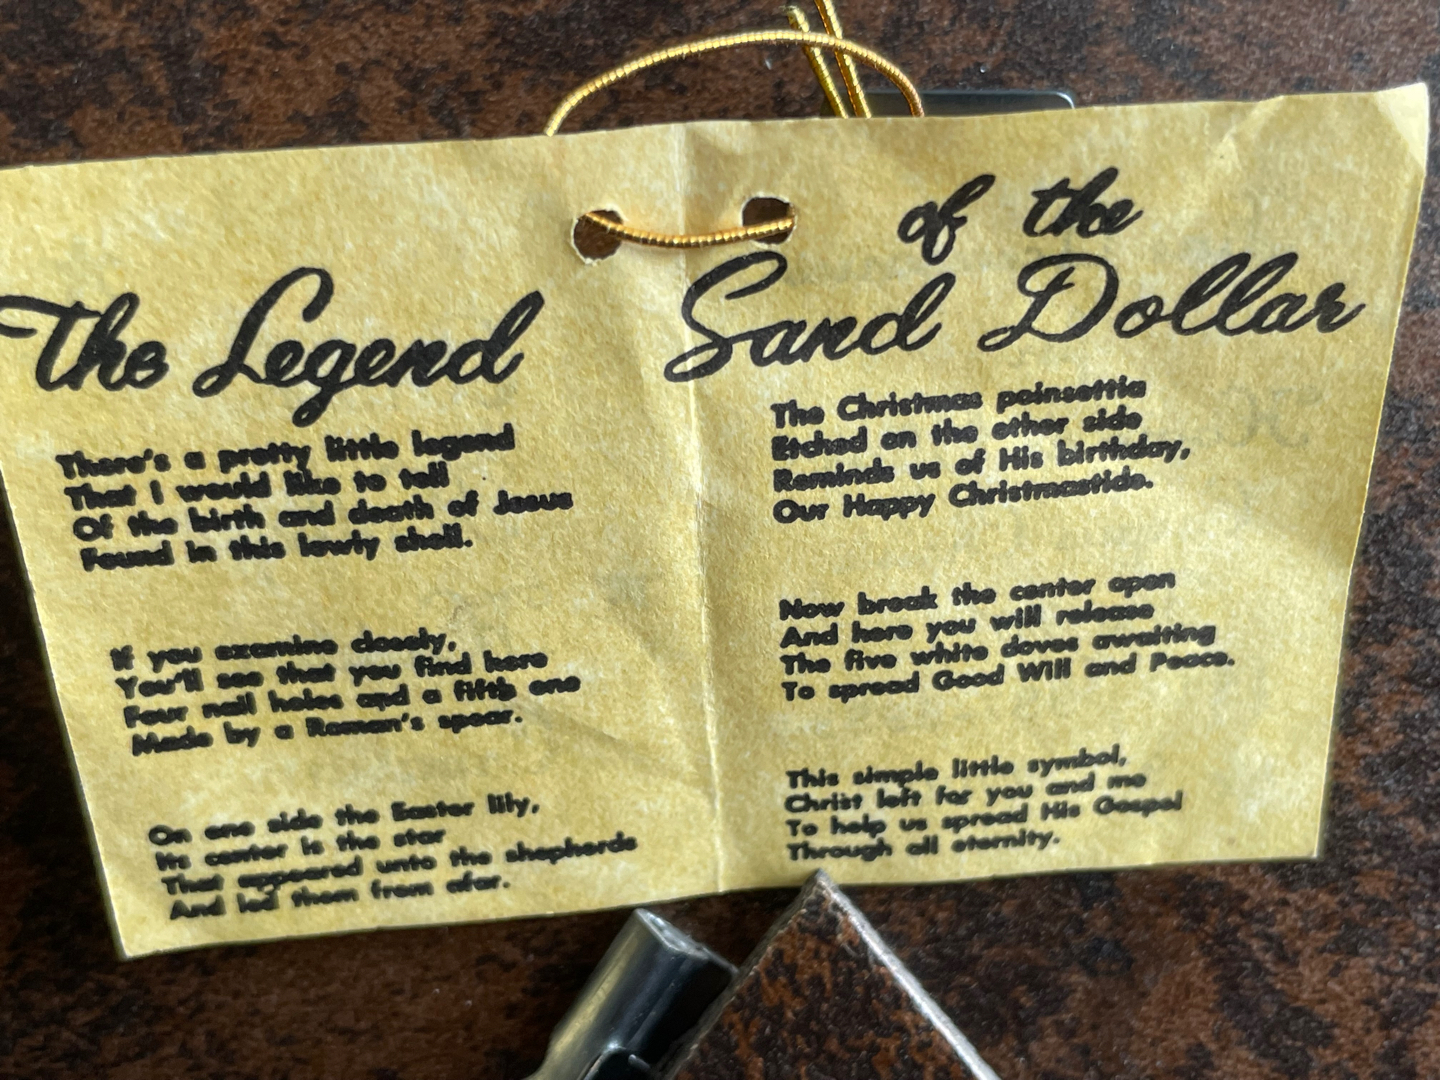 The Legend
of the
Sand Dollar
There's a pretty little legend
That I would like to tell
Of the birth and death of Jesus
Found in this lowly shell.
If you examine closely,
You'll see that you find here
Four nail holes and a fifth one
Made by a Roman's spear.
On one side the Easter lily,
Its center is the star
That appeared unto the shepherds
And led them from afar.
The Christmas poinsettia
Etched on the other side
Reminds us of His birthday,
Our Happy Christmastide.
Now break the center open
And here you will release
The five white doves awaiting
To spread Good Will and Peace.
This simple little symbol,
Christ left for you and me
To help us spread His Gospel
Through all eternity.